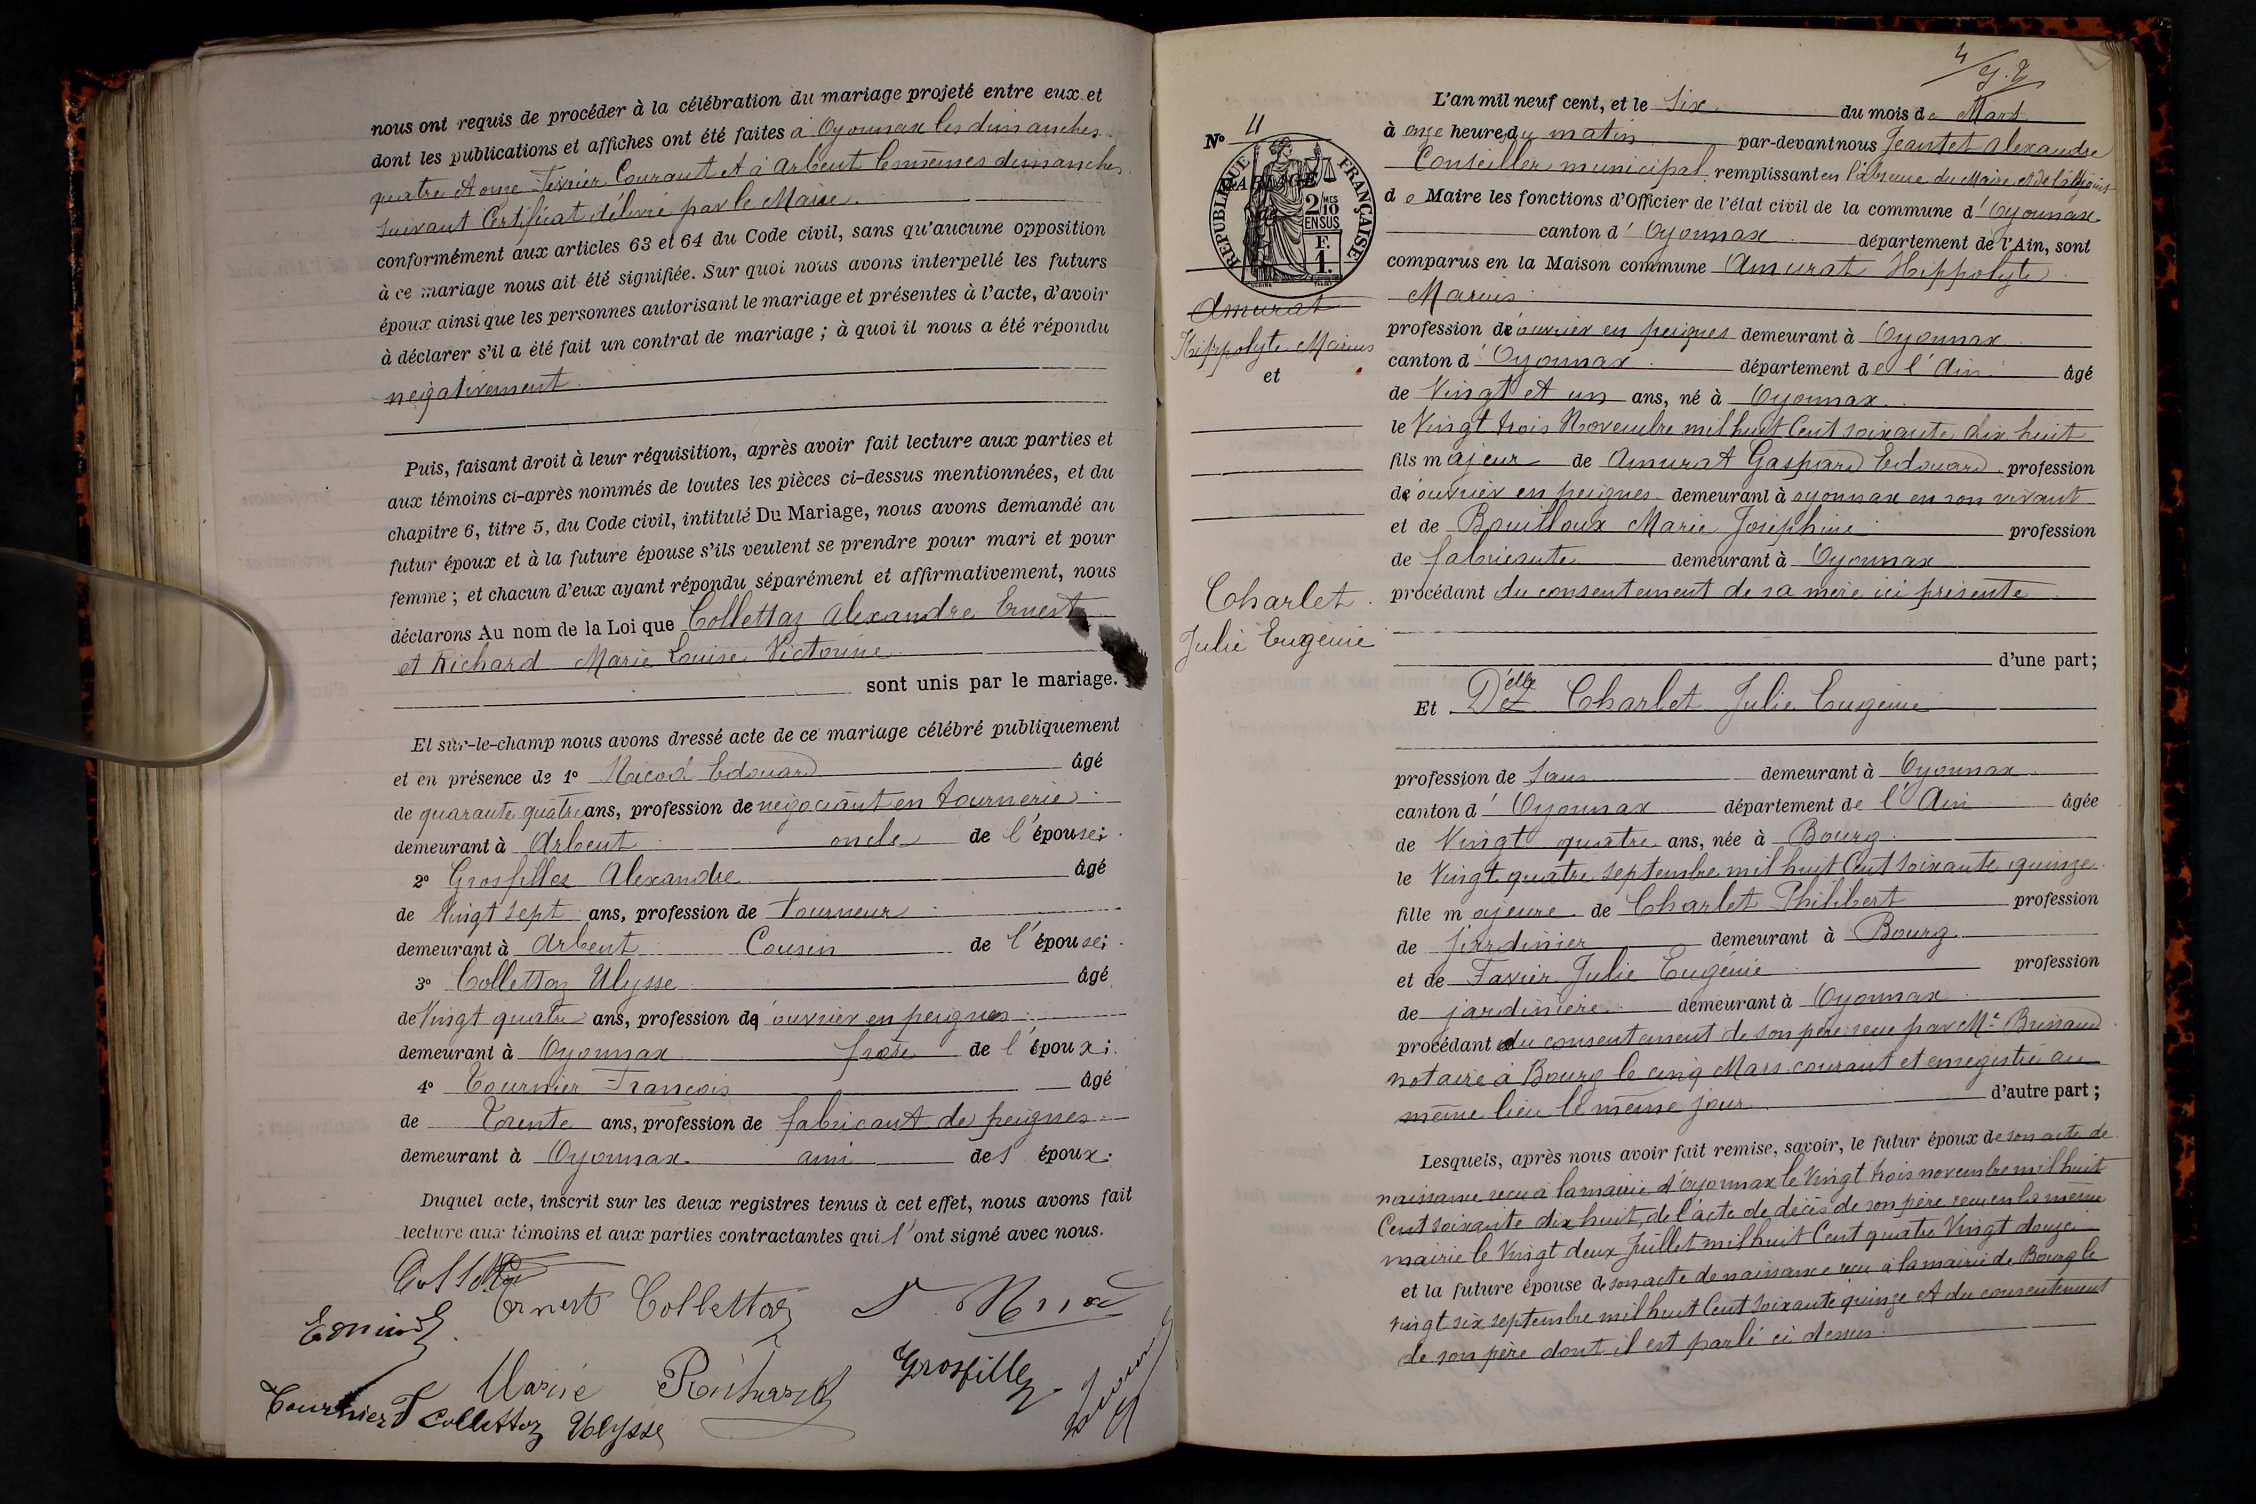 nous ont requis de procéder à la célébration du mariage projeté entre eux et
dont les publications et affiches ont été faites à Oyonnax les dimanches
quatre et onze Février Courant et à Arbent les mêmes dimanches
suivant Certificat délivré par le Maire.
conformément aux articles 63 et 64 du Code civil, sans qu'aucune opposition
à ce mariage nous ait été signifiée. Sur quoi nous avons interpellé les futurs
époux ainsi que les personnes autorisant le mariage et présentes à l'acte, d'avoir
à déclarer s'il a été fait un contrat de mariage ; à quoi il nous a été répondu
négativement
Puis, faisant droit à leur réquisition, après avoir fait lecture aux parties et
aux témoins ci-après nommés de toutes les pièces ci-dessus mentionnées, et du
chapitre 6, titre 5, du Code civil, intitulé Du Mariage, nous avons demandé au
futur époux et à la future épouse s'ils veulent se prendre pour mari et pour
femme ; et chacun d'eux ayant répondu séparément et affirmativement, nous
déclarons Au nom de la Loi que Collettaz Alexandre Ernest
et Richard Marie Louise Victorine
sont unis par le mariage.
Et sur-le-champ nous avons dressé acte de ce mariage célébré publiquement
et en présence de 1° Nicod Edouard âgé
de quarante quatre ans, profession de négociant en tournerie
demeurant à Arbent oncle de l'épouse;
2° Grosfillez Alexandre âgé
de Vingt sept ans, profession de Tourneur
demeurant à Arbent Cousin de l'épouse;
3° Collettaz Ulysse âgé
de Vingt quatre ans, profession d'ouvrier en peignes
demeurant à Oyonnax frère de l'époux;
4° Tournier François âgé
de Trente ans, profession de fabricant de peignes
demeurant à Oyonnax ami des époux.
Duquel acte, inscrit sur les deux registres tenus à cet effet, nous avons fait
lecture aux témoins et aux parties contractantes qui l'ont signé avec nous.
Ernest Collettaz
Marie Richard
Grosfillez
Tournier F Collettaz Ulysse
4
N° 11
RÉPUBLIQUE FRANÇAISE
2/10 EN SUS
F. 1.
MARIAGE
Amurat
Hippolyte Marius
et
Charlet
Julie Eugénie
L'an mil neuf cent, et le Six du mois de Mars
à onze heures du matin par-devant nous Jeantet Alexandre
Conseiller municipal remplissant en l'absence du Maire et de l'adjoint
de Maire les fonctions d'Officier de l'état civil de la commune d'Oyonnax
canton d'Oyonnax département de l'Ain, sont
comparus en la Maison commune Amurat Hippolyte
Marius
profession d'ouvrier en peignes demeurant à Oyonnax
canton d'Oyonnax département de l'Ain âgé
de Vingt et un ans, né à Oyonnax
le Vingt trois Novembre mil huit Cent soixante dix huit
fils majeur de Amurat Gaspard Edouard profession
d'ouvrier en peignes demeurant à oyonnax en son vivant
et de Bouilloux Marie Joséphine profession
de fabricante demeurant à Oyonnax
procédant du consentement de sa mère ici présente
d'une part;
Et Delle Charlet Julie Eugénie
profession de Sans demeurant à Oyonnax
canton d'Oyonnax département de l'Ain âgée
de Vingt quatre ans, née à Bourg
le Vingt quatre septembre mil huit Cent soixante quinze
fille majeure de Charlet Philibert profession
de jardinier demeurant à Bourg
et de Favier Julie Eugénie profession
de jardinière demeurant à Oyonnax
procédant du consentement de son père reçu par Me
notaire à Bourg le cinq Mars courant et enregistré au
même lieu le même jour d'autre part;
Lesquels, après nous avoir fait remise, savoir, le futur époux de son acte de
naissance reçu à la mairie d'Oyonnax le Vingt trois novembre mil huit
Cent soixante dix huit, de l'acte de décès de son père reçu en la même
mairie le Vingt deux Juillet mil huit Cent quatre Vingt douze
et la future épouse de son acte de naissance reçu à la mairie de Bourg le
vingt six septembre mil huit Cent soixante quinze et du consentement
de son père dont il est parlé ci dessus